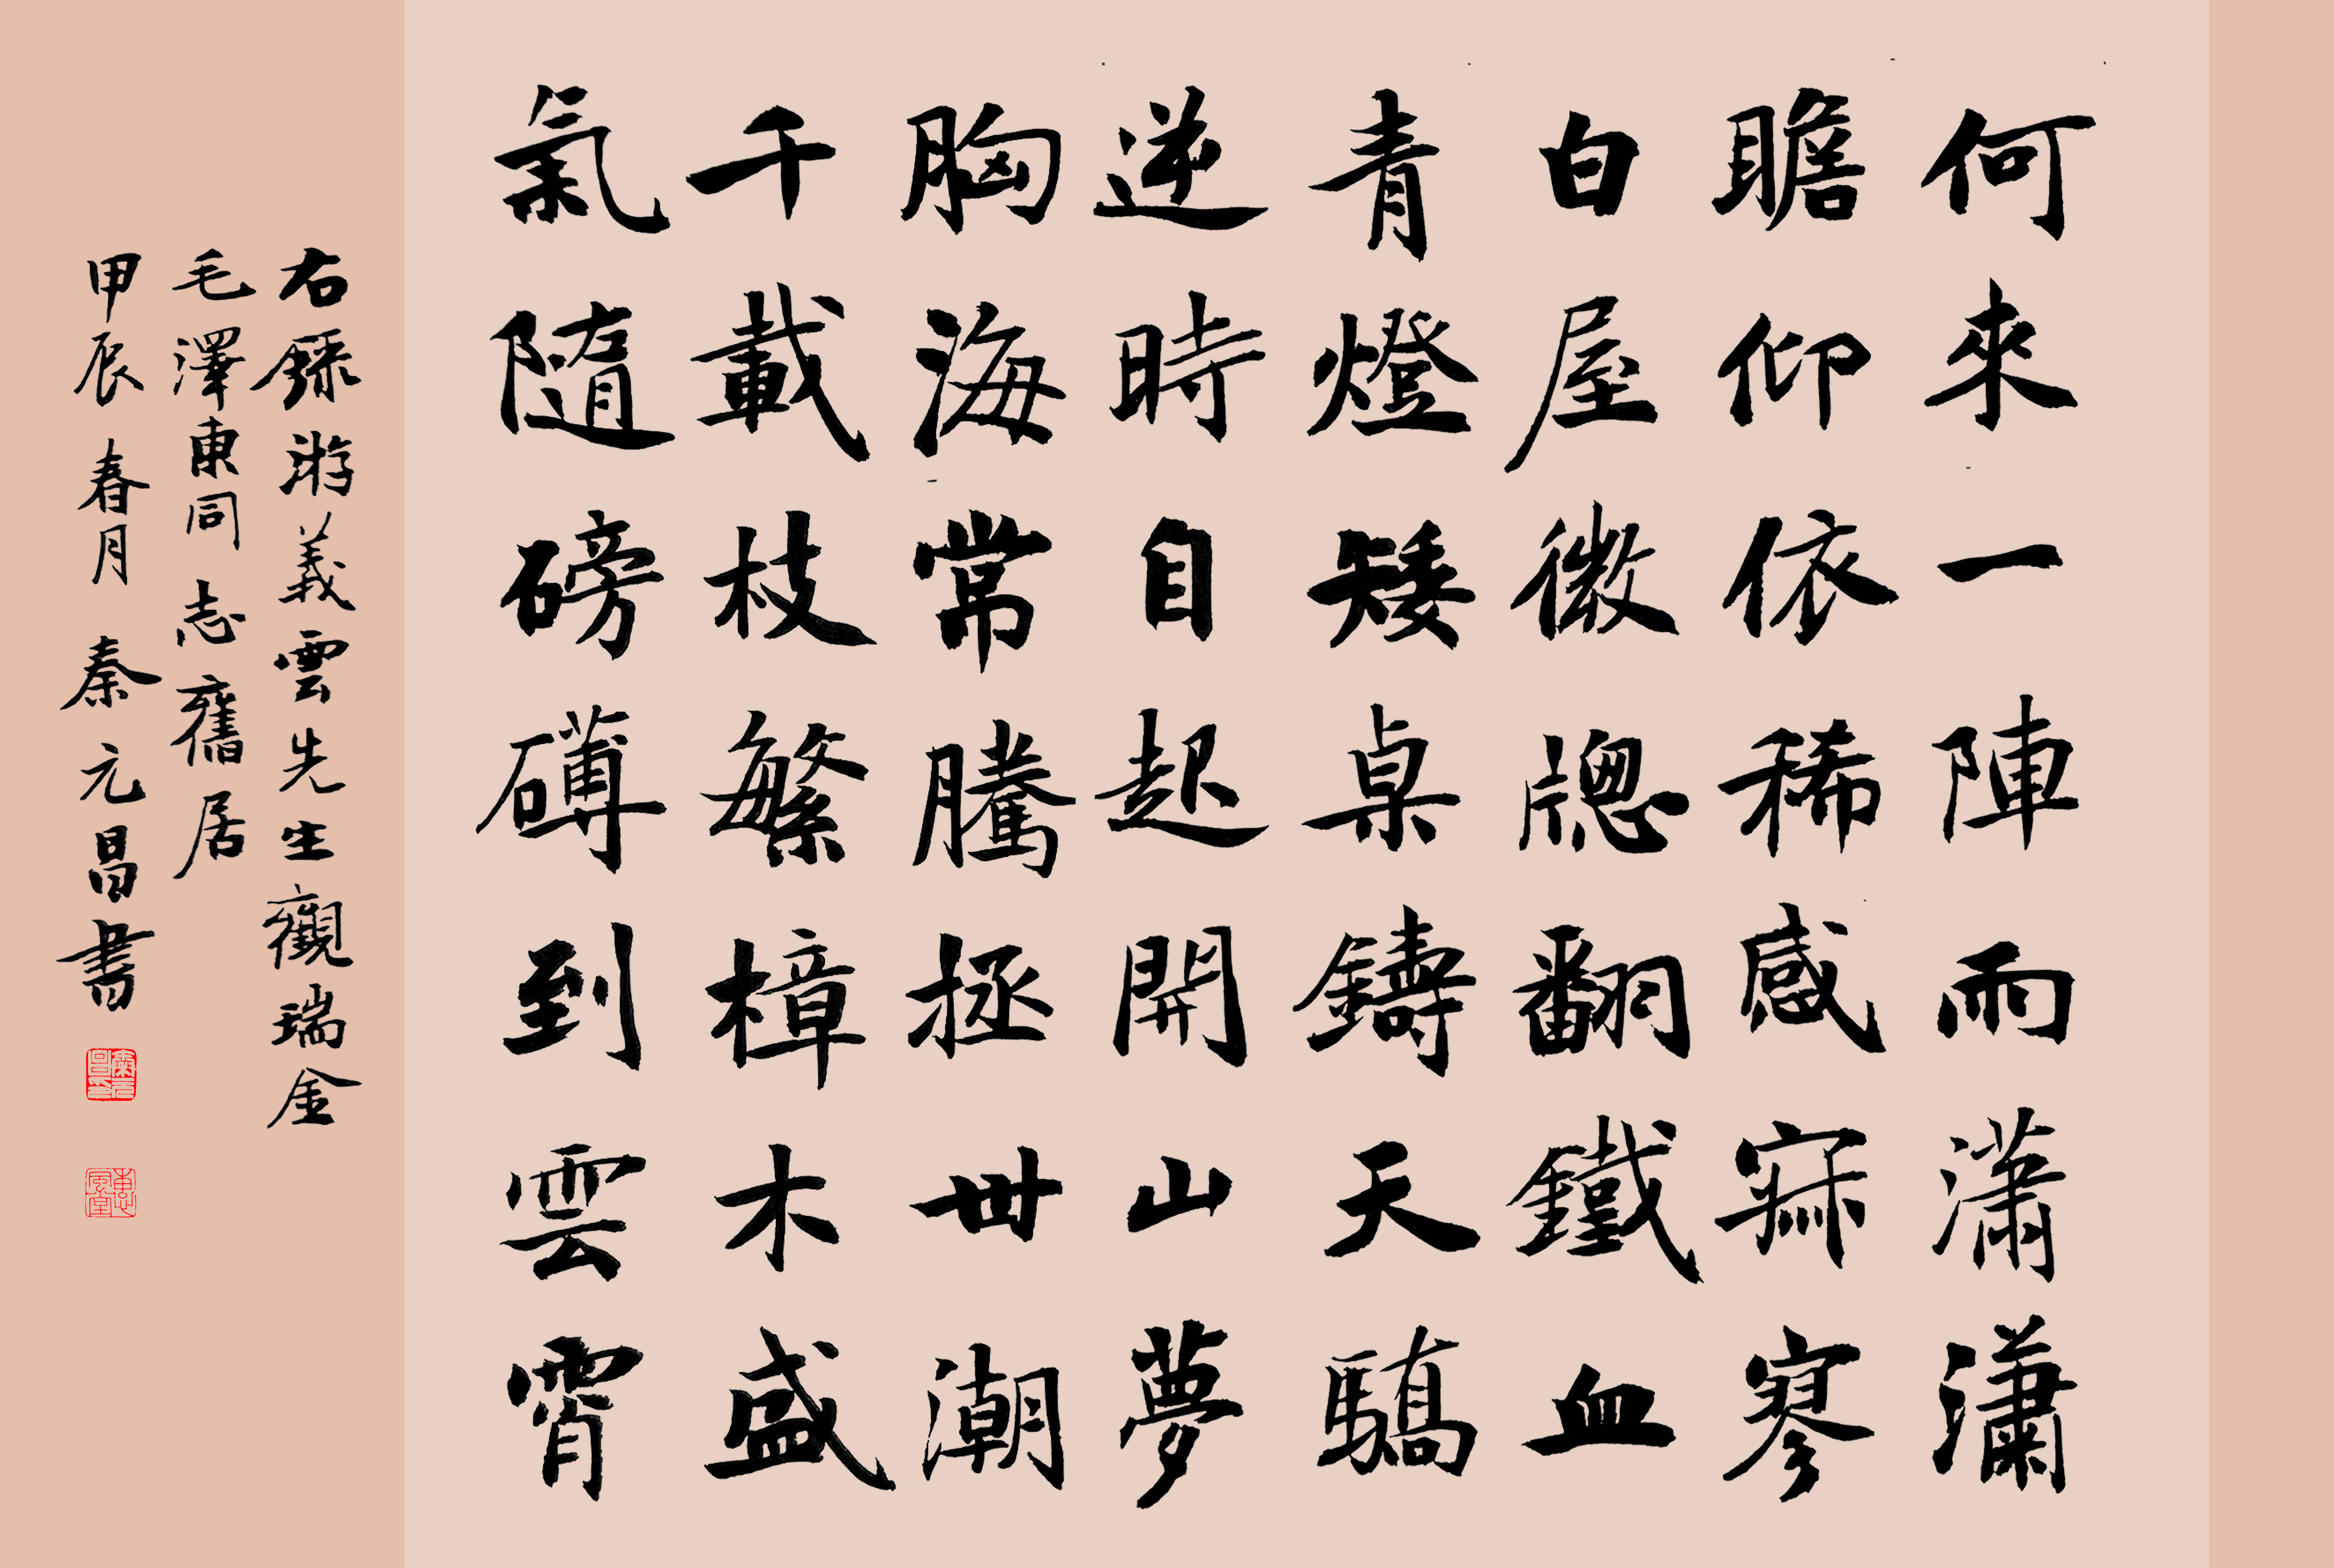 何來一陣雨潇瀟
瞻仰依稀感寂寥
白屋微牕翻鐵血
青燈矮桌鑄天驕
逆時自起開山夢
胸海常騰拯世潮
千載枝繁樟木盛
氣隨磅礴到雲霄
右錄游義雲先生觀瑞金
毛澤東同志舊居
甲辰春月秦元昌書
秦元昌印